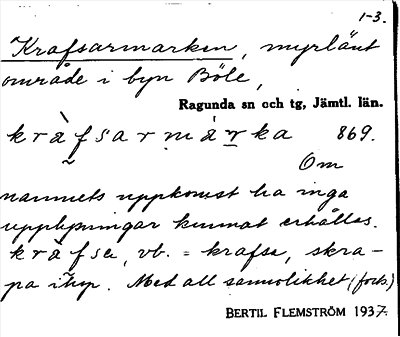 1-3.
Krafsarmarken, myrlänt
område i byn Böle,
Ragunda sn och tg, Jämtl. län.
kràfsarmárka 869.
Om
namnets uppkomst ha inga
upplysningar kunnat erhållas.
kràfsa, vb. = krafsa, skra-
pa ihop. Med all sannolikhet (forts.)
BERTIL FLEMSTRÖM 1937.